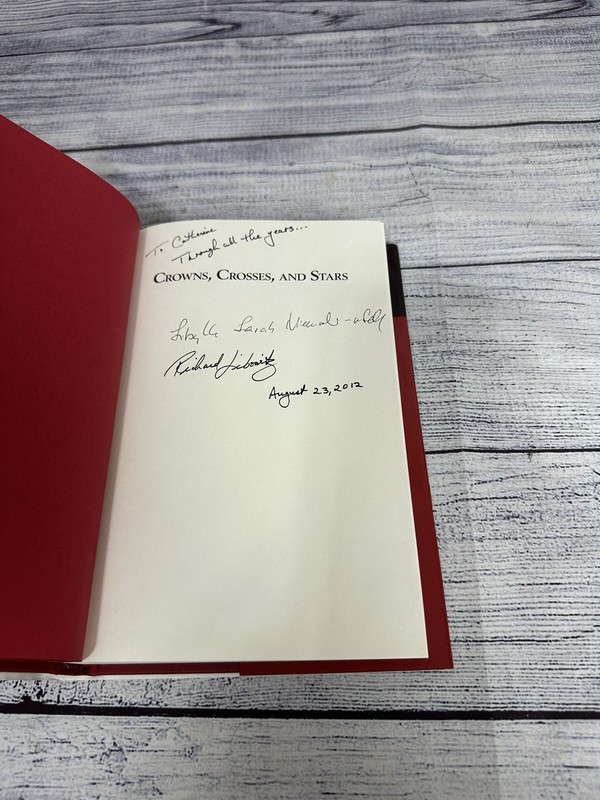 To Catherine
Through all the years...
CROWNS, CROSSES, AND STARS
Sibylle Sarah Niemoeller-
Richard Libowitz
August 23, 2012